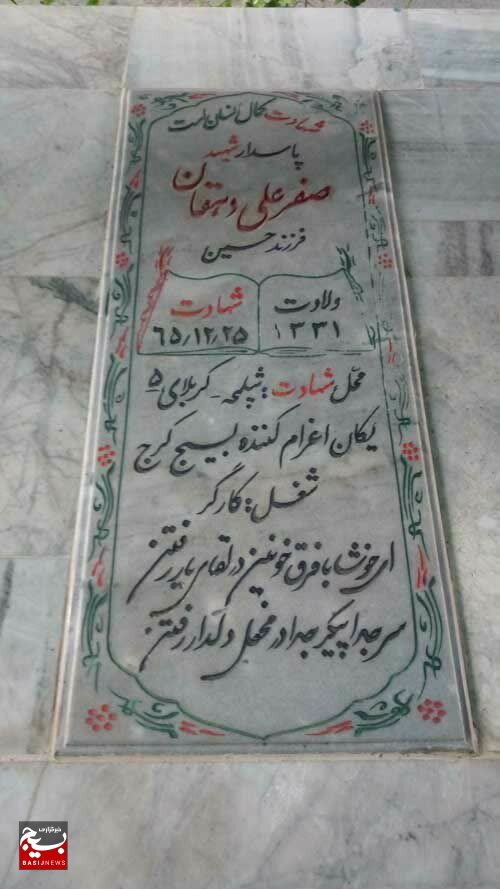 شهادت کمال انسان است
پاسدار شهید
صفرعلی دهقان
فرزند حسین
ولادت
۱۳۳۱
شهادت
۶۵٫۱۲٫۲۵
محل شهادت: شلمچه - کربلای ۵
یگان اعزام کننده بسیج کرج
شغل: کارگر
ای خوشا با فرق خونین در لقای یار رفتن
سر جدا پیکر جدا در محفل دلدار رفتن
خبرگزاری
بسیج
BASIJNEWS